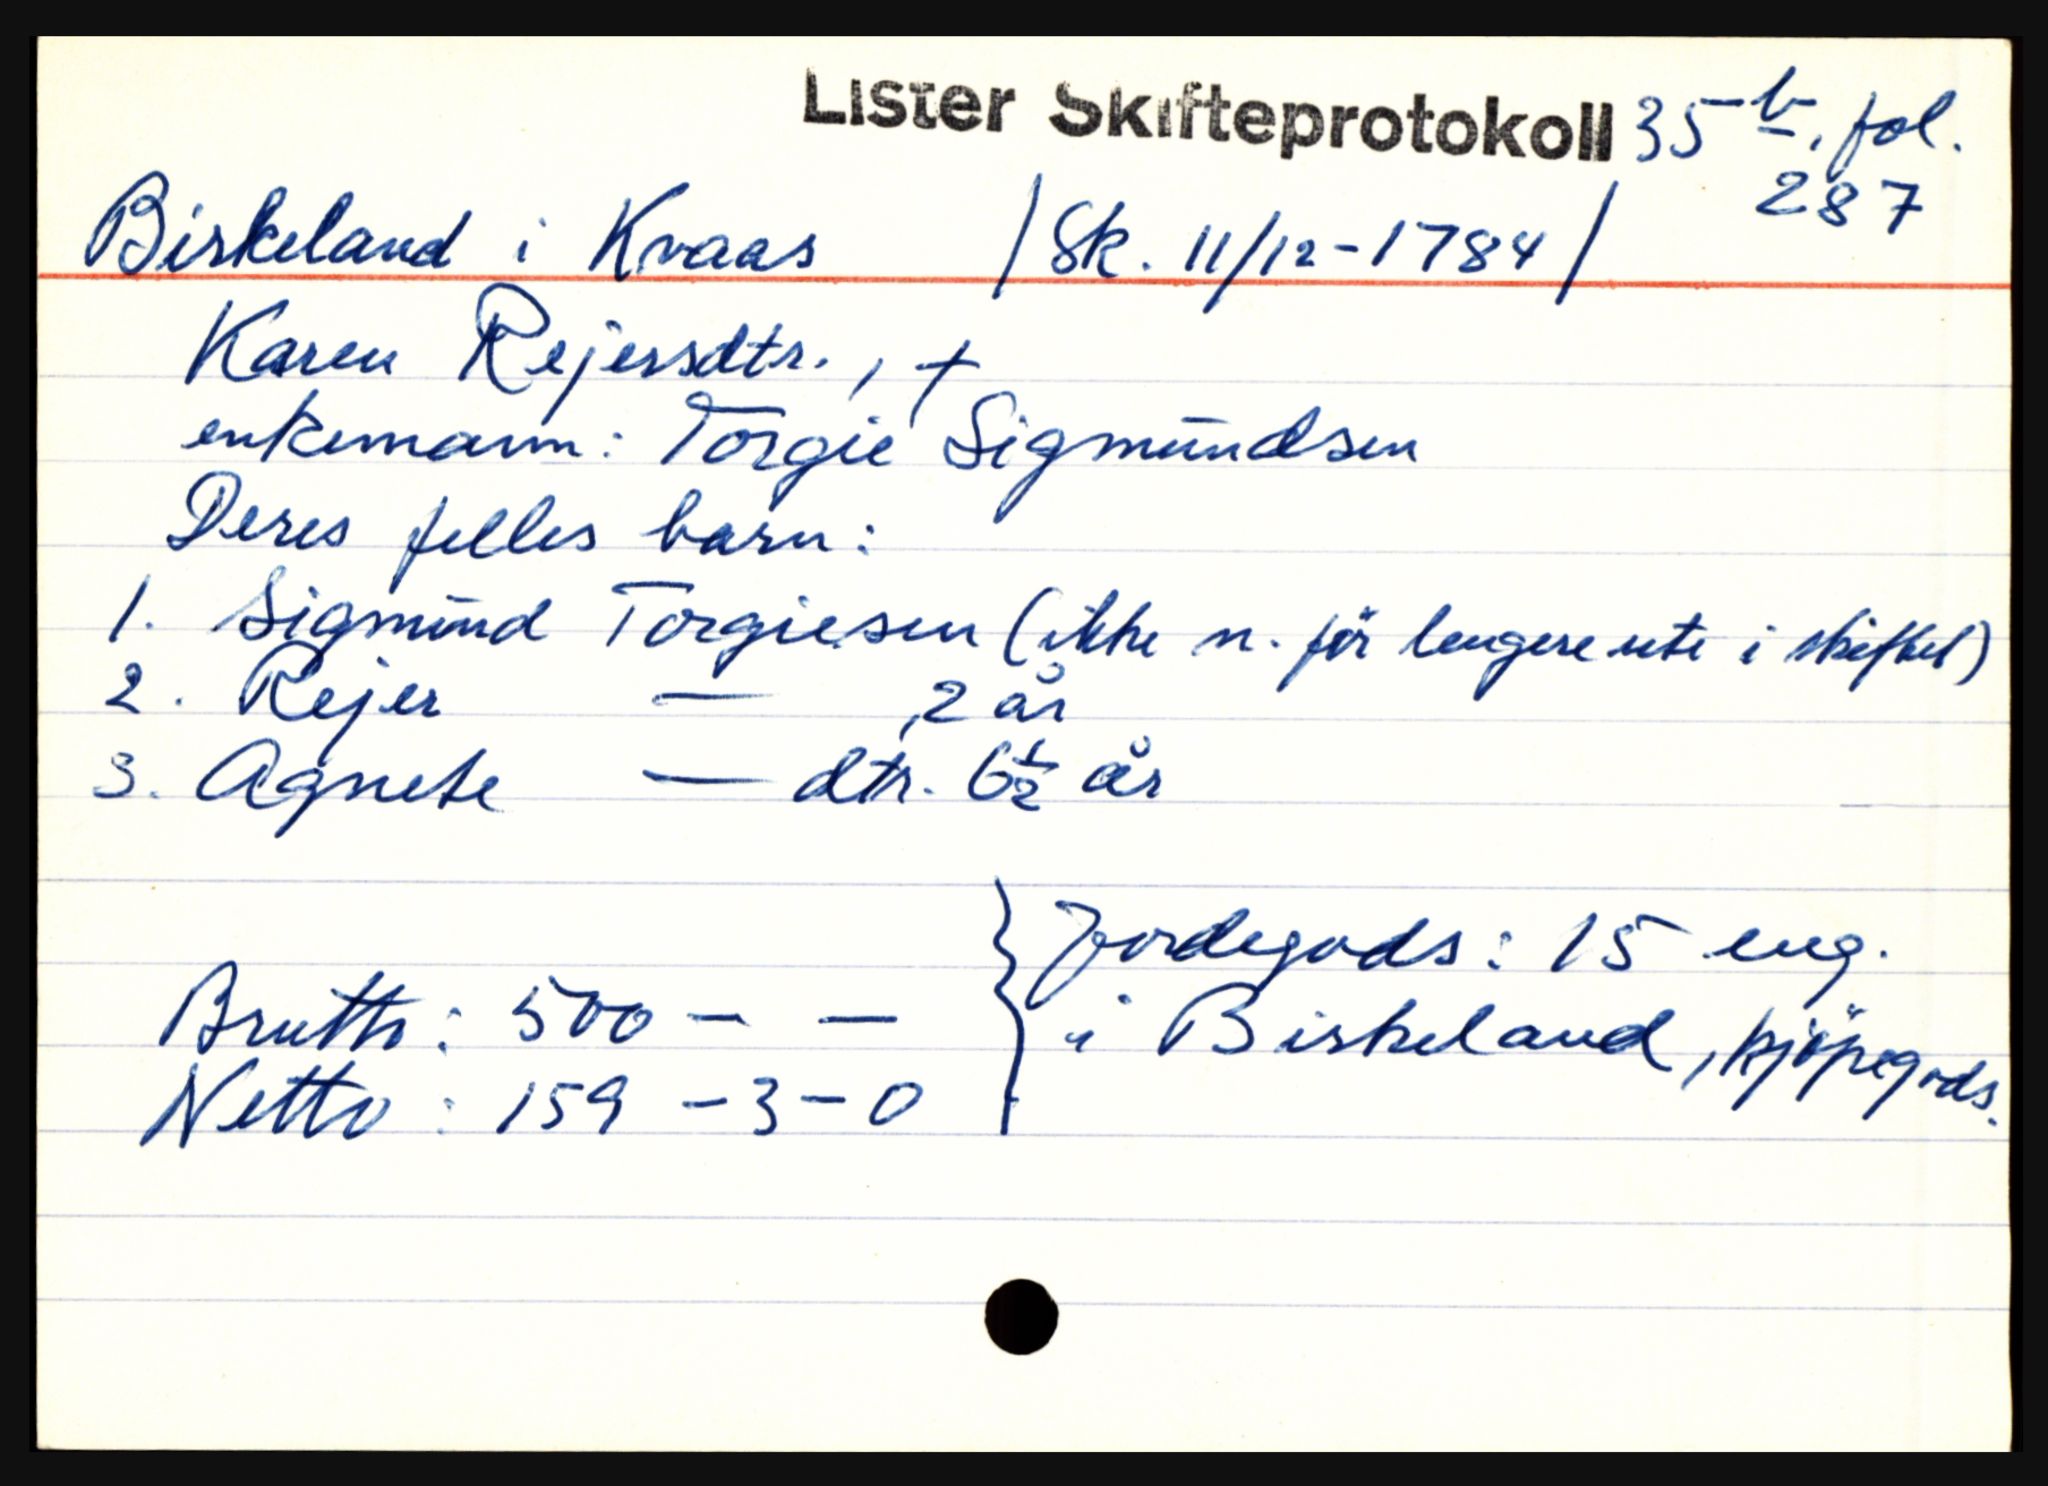 Lister Skifteprotokoll 35 b, fol.
287
Birkeland i Kvaas /Sk. 11/12-1784/
Karen Rejersdtr., +
enkemann: Torgie Sigmundsen
Deres felles barn:
1. Sigmund Torgiesen (ikke n. før lengere ute i skiftet)
2. Rejer — , 2 år
3. Agnete — dtr. 6½ år
Jordegods: 15 eng.
Brutto: 500 — —
i Birkeland, kjøpegods.
Netto: 159 - 3 - 0